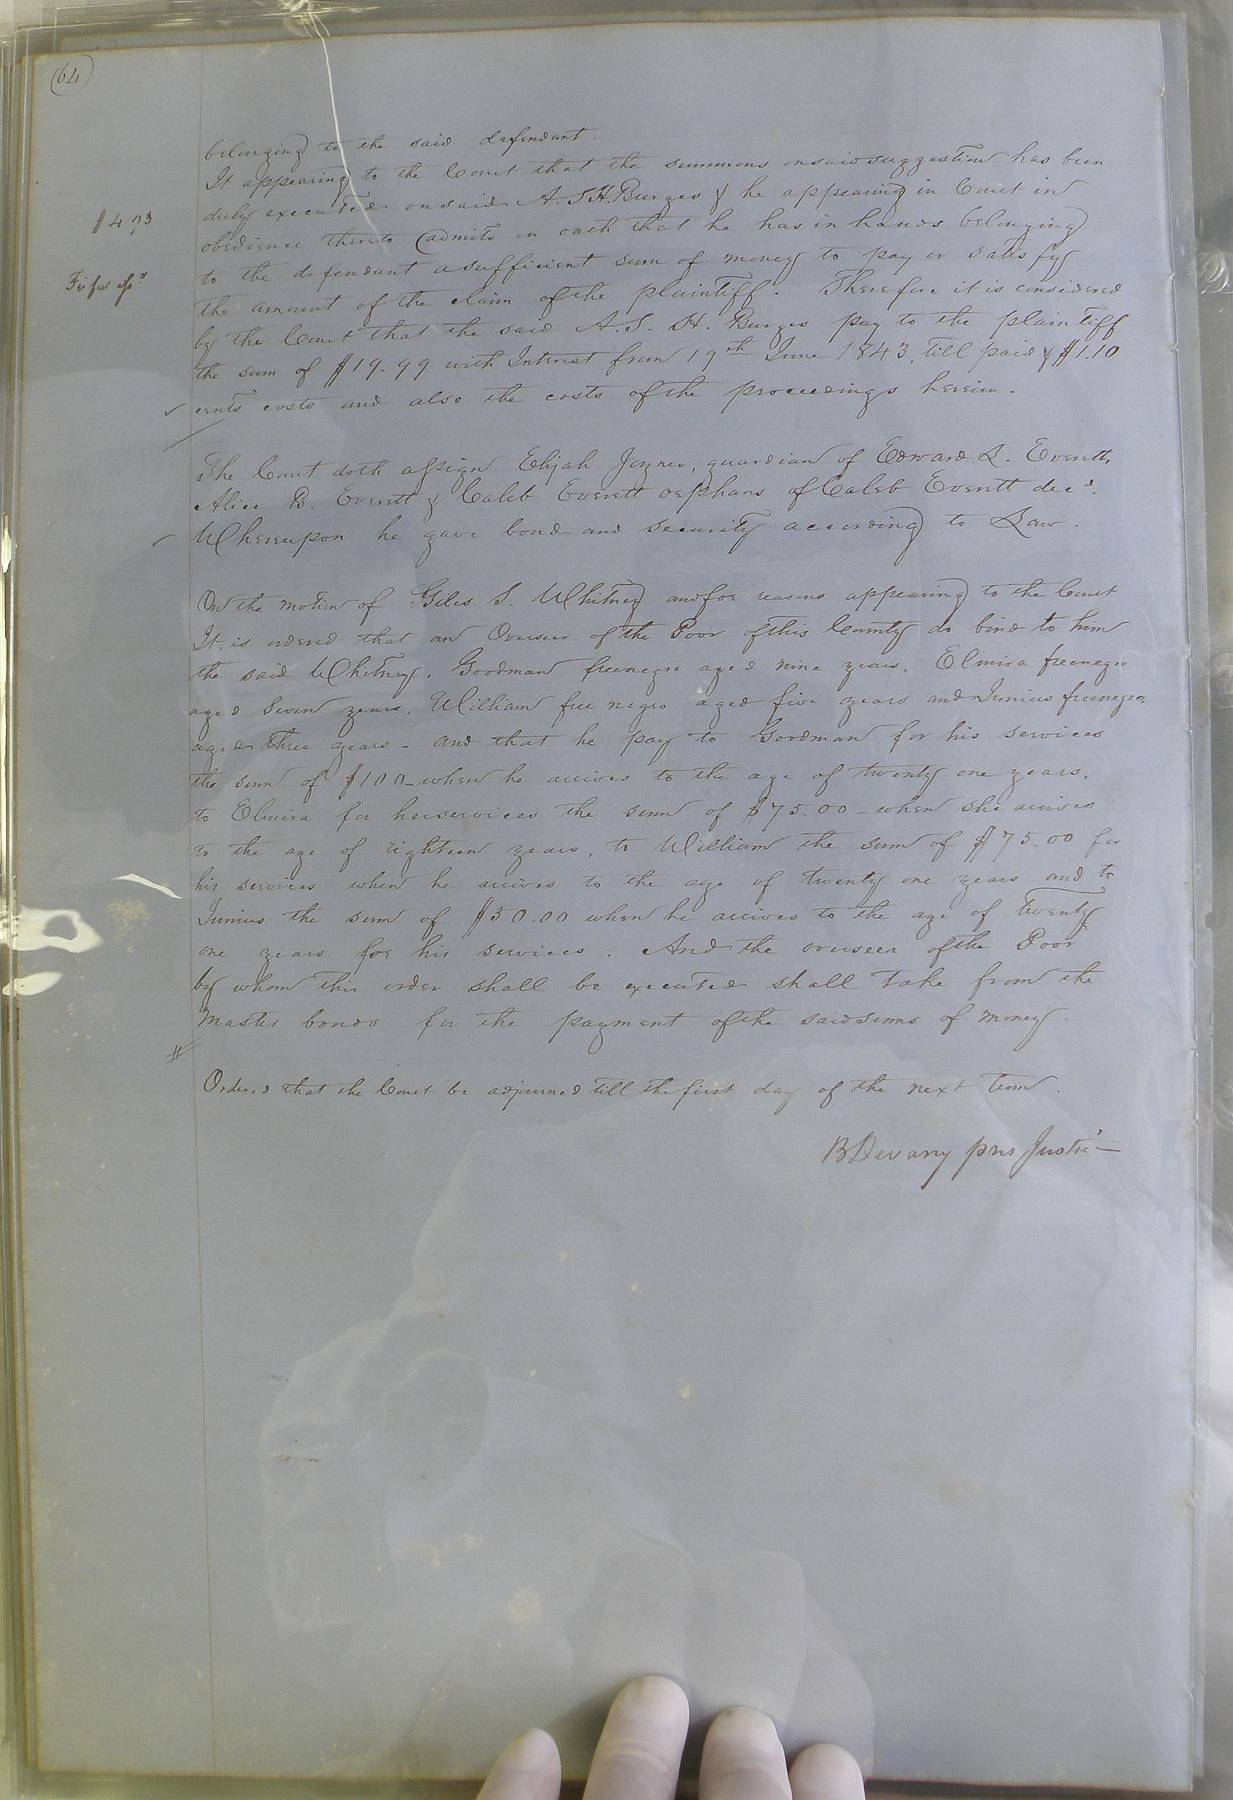 (64)
belonging to the said defendant.
It appearing to the Court that the summons on said suggestion has been
duly executed on said A. S. H. Burges & he appearing in Court in
$4.03
obedience thereto admits on oath that he has in hands belonging
to the defendant a sufficient sum of money to pay or satisfy
Fi fa
the amount of the claim of the plaintiff. Therefore it is considered
by the Court that the said A. S. H. Burges pay to the plaintiff
the sum of $19.99 with Interest from 19th June 1843 till paid & $1.10
cents costs and also the costs of the proceedings herein.
The Court doth assign Elijah Joyner, guardian of Edward L. Everett,
Alice B. Everett & Caleb Everett orphans of Caleb Everett decd.
Whereupon he gave bond and security according to Law.
On the motion of Giles S. Whitney and for reasons appearing to the Court
It is ordered that an Overseer of the Poor of this County do bind to him
the said Whitney, Goodman freenegro aged nine years, Elmira freenegro
aged Seven years, William free negro aged five years and Junius freenegro,
aged three years - and that he pay to Goodman for his services
the sum of $100 - when he arrives to the age of twenty one years,
to Elmira for her services the sum of $75.00 - when she arrives
to the age of eighteen years, to William the sum of $75.00 for
his services when he arrives to the age of twenty one years and to
Junius the sum of $50.00 when he arrives to the age of twenty
one years for his services. And the overseer of the Poor
by whom this order shall be executed shall take from the
Master bonds for the payment of the said sums of money.
Ordered that the Court be adjourned till the first day of the next term.
B Devany pres Justi